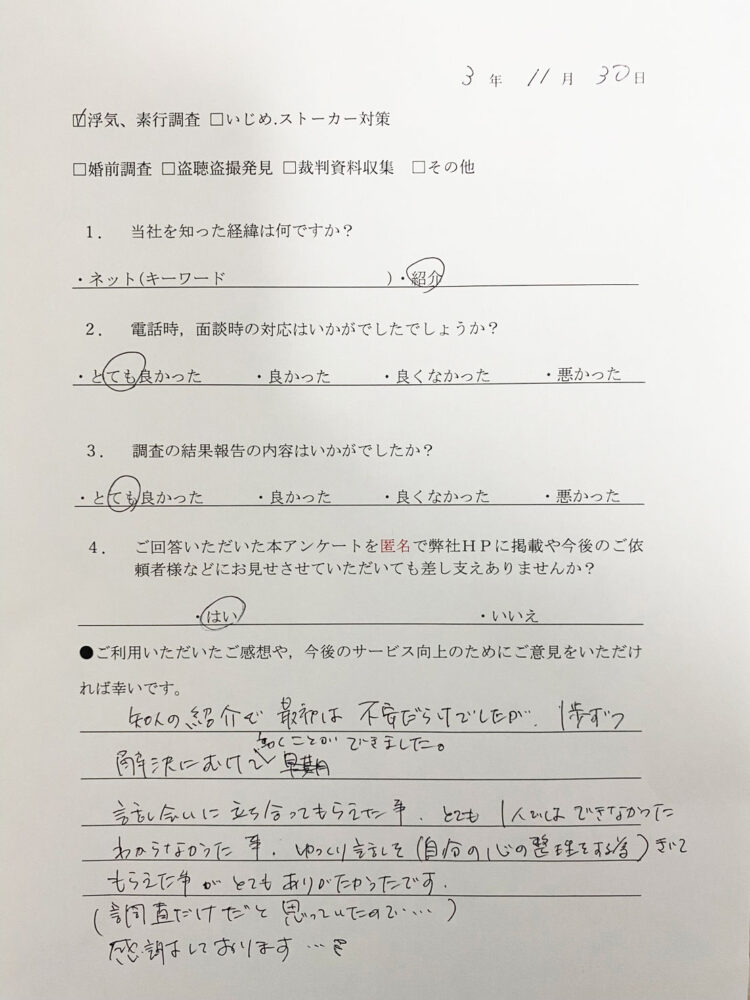 3年 11月 30日
☑浮気、素行調査 □いじめ.ストーカー対策
□婚前調査 □盗聴盗撮発見 □裁判資料収集 □その他
1. 当社を知った経緯は何ですか？
・ネット(キーワード )・紹介
2. 電話時，面談時の対応はいかがでしたでしょうか？
・とても良かった ・良かった ・良くなかった ・悪かった
3. 調査の結果報告の内容はいかがでしたか？
・とても良かった ・良かった ・良くなかった ・悪かった
4. ご回答いただいた本アンケートを匿名で弊社ＨＰに掲載や今後のご依
頼者様などにお見せさせていただいても差し支えありませんか？
・はい ・いいえ
●ご利用いただいたご感想や，今後のサービス向上のためにご意見をいただけ
れば幸いです。
知人の紹介で 最初は 不安だらけでしたが、1歩ずつ
動くことができました。
解決にむけて
話し合いに立ち合ってもらえた事、とても 1人ではできなかった
わからなかった事、ゆっくり話しを(自分の心の整理をする為)きいて
もらえた事がとてもありがたかったです。
(調査だけだと思っていたので…)
感謝しております…